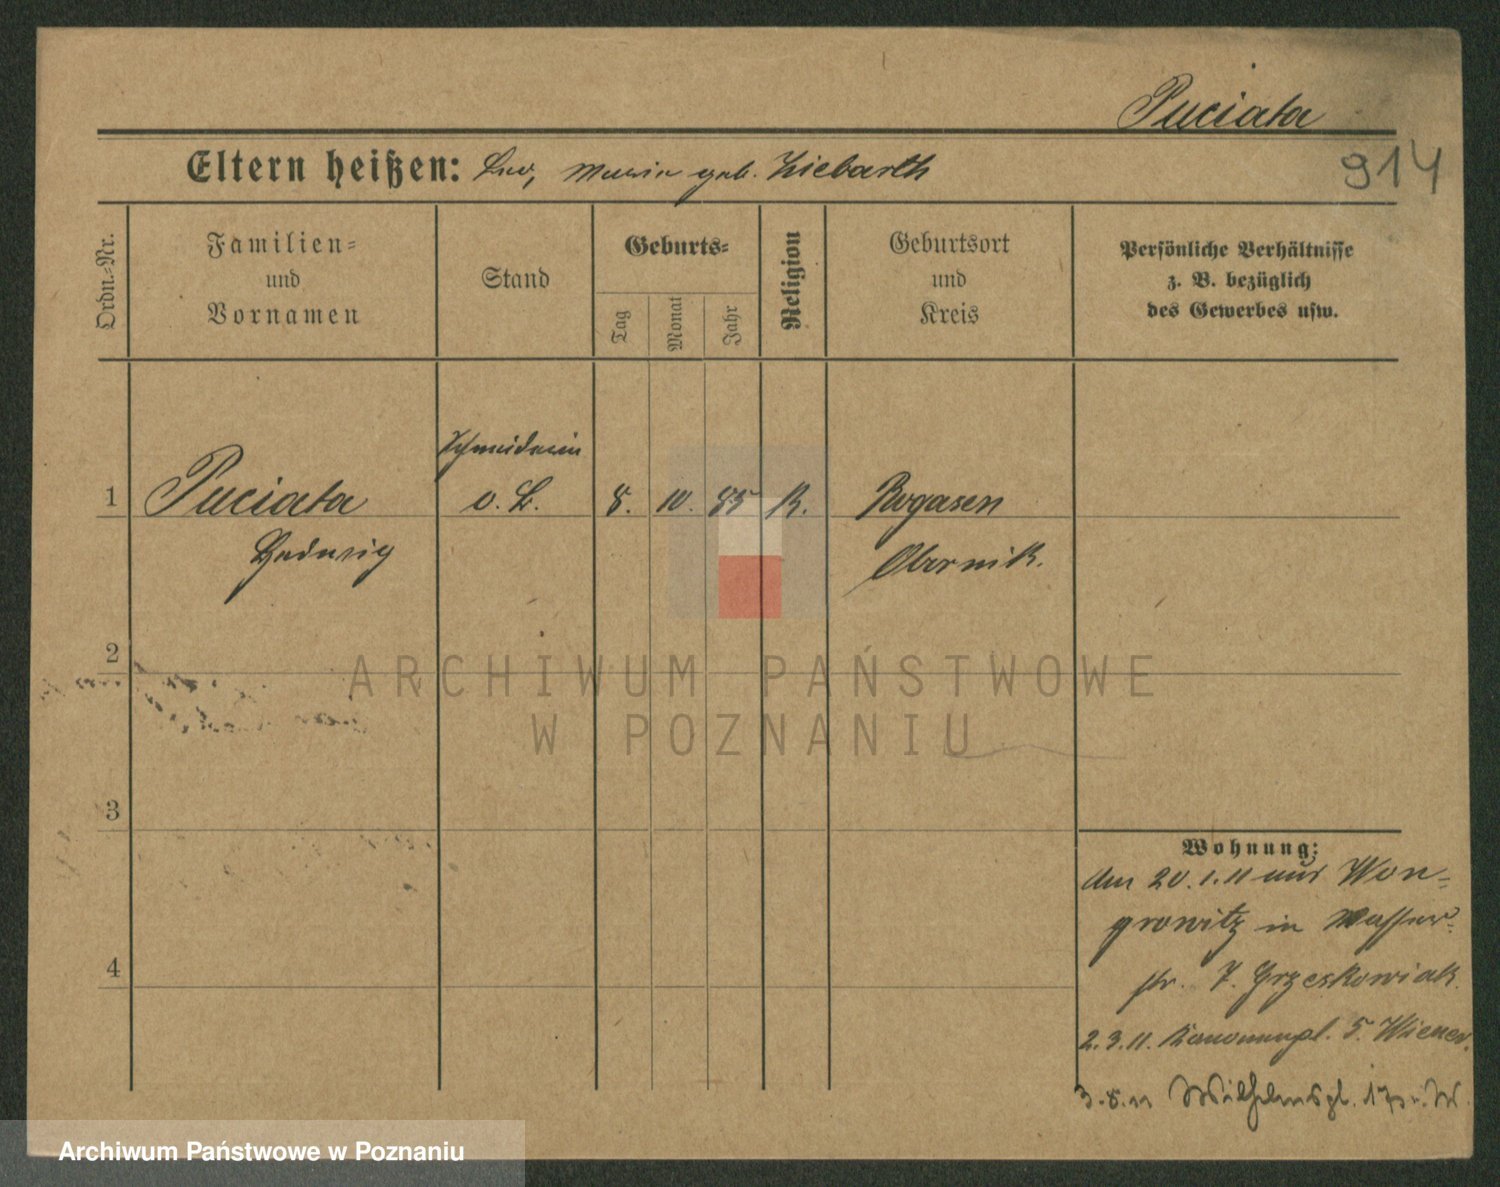 Puciata
914
Eltern heißen: Leo, Maria geb. Ziebarth
Ordn.-Nr.
Familien-
und
Vornamen
Stand
Geburts-
Tag
Monat
Jahr
Religion
Geburtsort
und
Kreis
Persönliche Verhältnisse
z. B. bezüglich
des Gewerbes usw.
Schneiderin
1 Puciata o. B. 8. 10. 85 K. Rogasen
Hedwig Obornik.
2
ARCHIWUM PAŃSTWOWE
W POZNANIU
3
Wohnung:
Am 20.1.11 aus Won-
growitz in Wasser-
4
str. 7. Grzeskowiak
2.3.11. 5. Wiener.
3.8.11 Wilhelmspl.
Archiwum Państwowe w Poznaniu